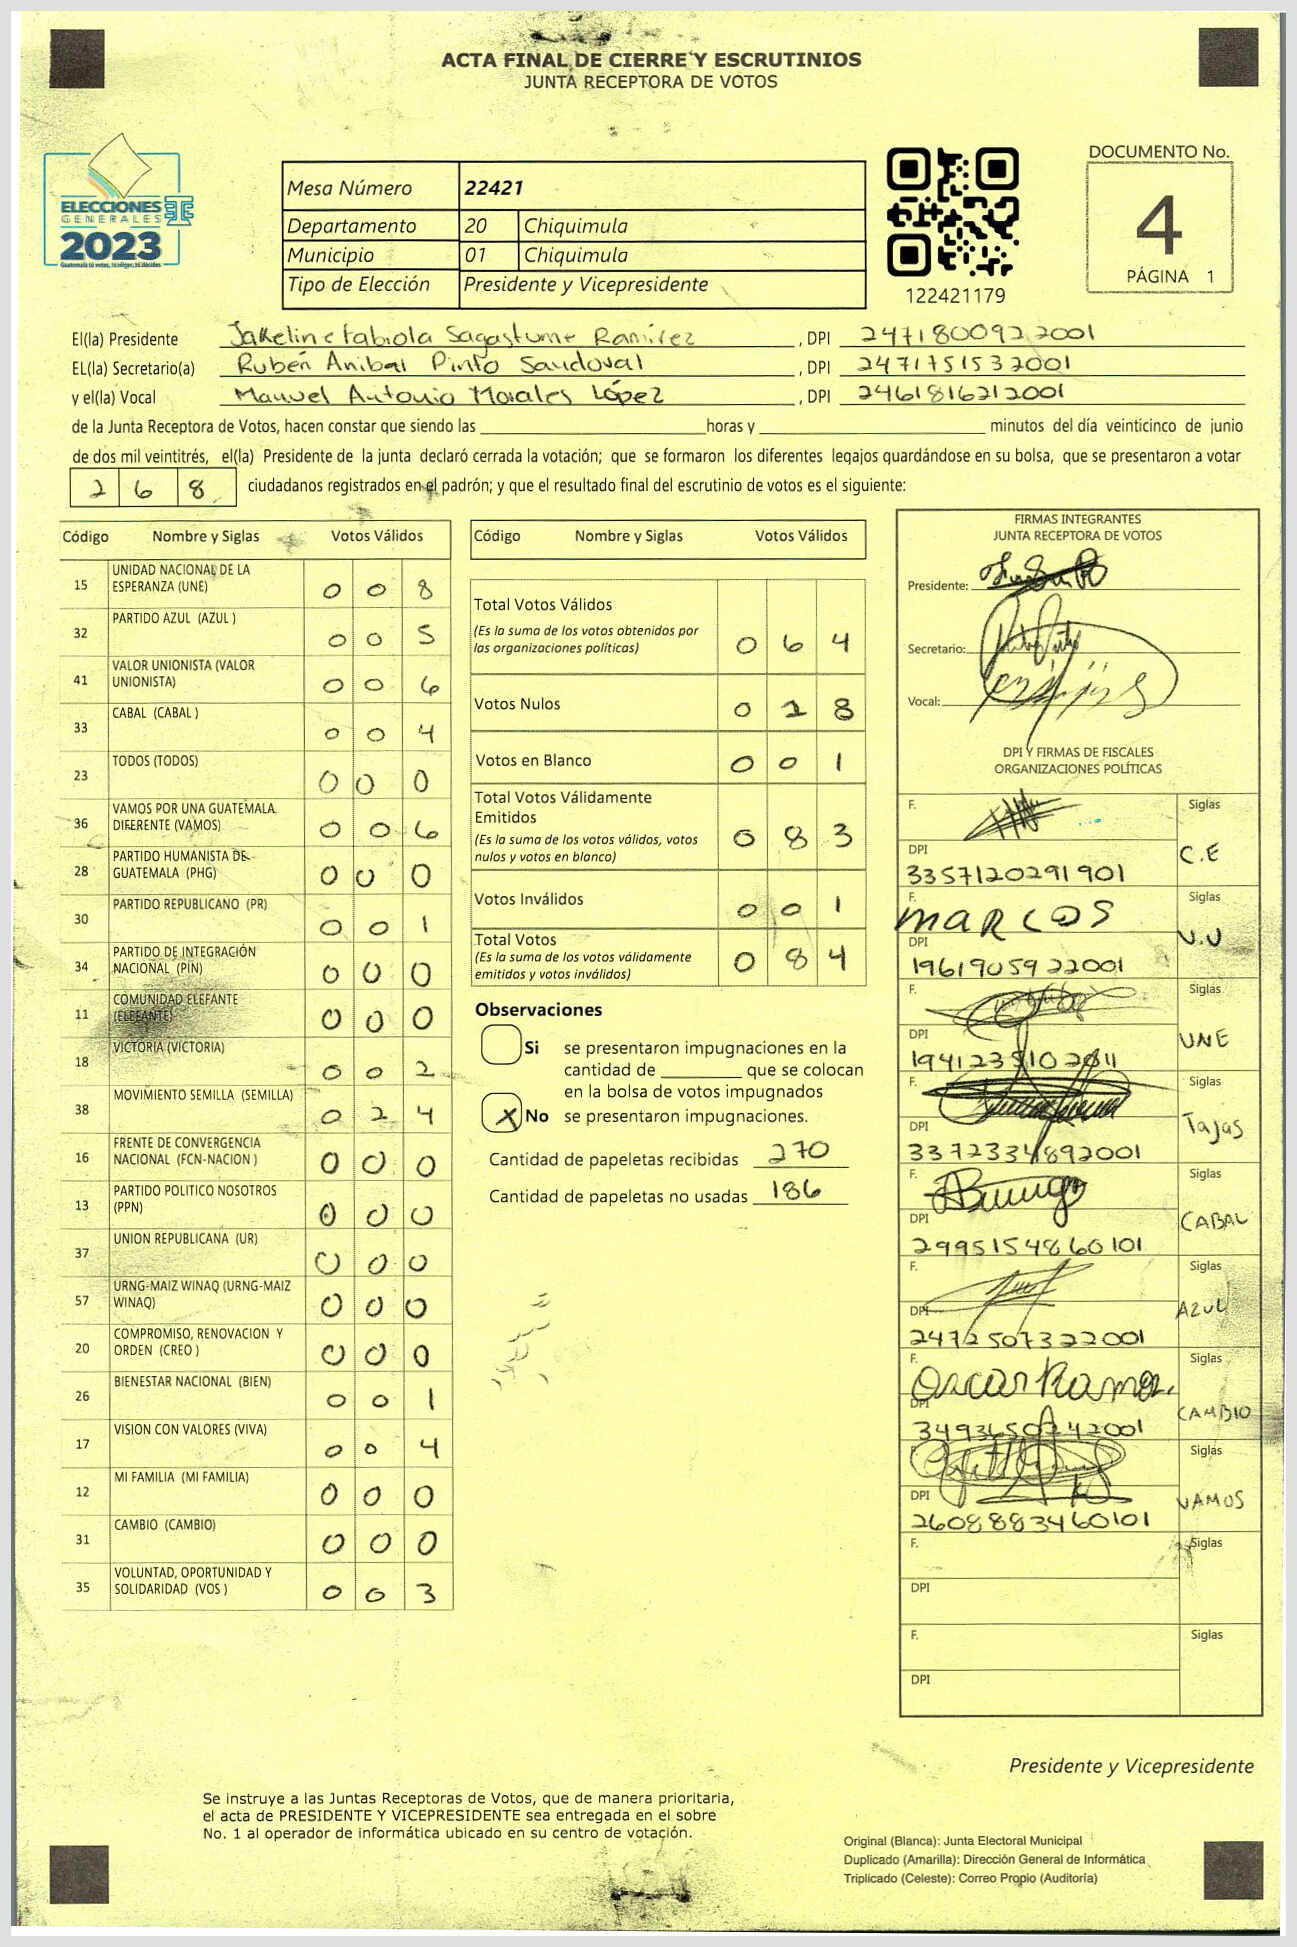 ACTA FINAL DE CIERRE Y ESCRUTINIOS
JUNTA RECEPTORA DE VOTOS
ELECCIONES
GENERALES
2023
Guatemala tú votas, tú eliges, tú decides
Mesa Número 22421
Departamento 20 Chiquimula
Municipio 01 Chiquimula
Tipo de Elección Presidente y Vicepresidente
122421179
DOCUMENTO No.
4
PÁGINA 1
El(la) Presidente Jakeline Fabiola Sagastume Ramírez, DPI 2471800922001
EL(la) Secretario(a) Rubén Anibal Pinto Sandoval, DPI 2471751532001
y el(la) Vocal Manuel Antonio Morales López, DPI 2461816212001
de la Junta Receptora de Votos, hacen constar que siendo las ____ horas y ____ minutos del día veinticinco de junio
de dos mil veintitrés, el(la) Presidente de la junta declaró cerrada la votación; que se formaron los diferentes legajos guardándose en su bolsa, que se presentaron a votar
2 6 8 ciudadanos registrados en el padrón; y que el resultado final del escrutinio de votos es el siguiente:
Código Nombre y Siglas Votos Válidos
15 UNIDAD NACIONAL DE LA ESPERANZA (UNE) 0 0 8
32 PARTIDO AZUL (AZUL ) 0 0 5
41 VALOR UNIONISTA (VALOR UNIONISTA) 0 0 6
33 CABAL (CABAL ) 0 0 4
23 TODOS (TODOS) 0 0 0
36 VAMOS POR UNA GUATEMALA DIFERENTE (VAMOS) 0 0 6
28 PARTIDO HUMANISTA DE GUATEMALA (PHG) 0 0 0
30 PARTIDO REPUBLICANO (PR) 0 0 1
34 PARTIDO DE INTEGRACIÓN NACIONAL (PIN) 0 0 0
11 COMUNIDAD ELEFANTE (ELEFANTE) 0 0 0
18 VICTORIA (VICTORIA) 0 0 2
38 MOVIMIENTO SEMILLA (SEMILLA) 0 2 4
16 FRENTE DE CONVERGENCIA NACIONAL (FCN-NACION ) 0 0 0
13 PARTIDO POLITICO NOSOTROS (PPN) 0 0 0
37 UNION REPUBLICANA (UR) 0 0 0
57 URNG-MAIZ WINAQ (URNG-MAIZ WINAQ) 0 0 0
20 COMPROMISO, RENOVACION Y ORDEN (CREO ) 0 0 0
26 BIENESTAR NACIONAL (BIEN) 0 0 1
17 VISION CON VALORES (VIVA) 0 0 4
12 MI FAMILIA (MI FAMILIA) 0 0 0
31 CAMBIO (CAMBIO) 0 0 0
35 VOLUNTAD, OPORTUNIDAD Y SOLIDARIDAD (VOS ) 0 0 3
Código Nombre y Siglas Votos Válidos
Total Votos Válidos 0 6 4
(Es la suma de los votos obtenidos por
las organizaciones políticas)
Votos Nulos 0 18
Votos en Blanco 0 0 1
Total Votos Válidamente
Emitidos 0 8 3
(Es la suma de los votos válidos, votos
nulos y votos en blanco)
Votos Inválidos 0 0 1
Total Votos 0 8 4
(Es la suma de los votos válidamente
emitidos y votos inválidos)
Observaciones
Si se presentaron impugnaciones en la
cantidad de ____ que se colocan
en la bolsa de votos impugnados
X No se presentaron impugnaciones.
Cantidad de papeletas recibidas 270
Cantidad de papeletas no usadas 186
FIRMAS INTEGRANTES
JUNTA RECEPTORA DE VOTOS
Presidente:
Secretario:
Vocal:
DPI Y FIRMAS DE FISCALES
ORGANIZACIONES POLÍTICAS
F. Siglas
DPI C.E
3357120291901
F. MARCOS Siglas
DPI U.U
1961905922001
F. Siglas
DPI UNE
1941235102011
F. Siglas
DPI Tajas
3372334892001
F. Siglas
DPI CABAL
2995154860101
F. Siglas
DPI AZUL
2472507322001
F. Oscar Ramo Siglas
DPI CAMBIO
3493650742001
F. Siglas
DPI VAMOS
2608883460101
F. Siglas
DPI
F. Siglas
DPI
Presidente y Vicepresidente
Se instruye a las Juntas Receptoras de Votos, que de manera prioritaria,
el acta de PRESIDENTE Y VICEPRESIDENTE sea entregada en el sobre
No. 1 al operador de informática ubicado en su centro de votación.
Original (Blanca): Junta Electoral Municipal
Duplicado (Amarilla): Dirección General de Informática
Triplicado (Celeste): Correo Propio (Auditoría)